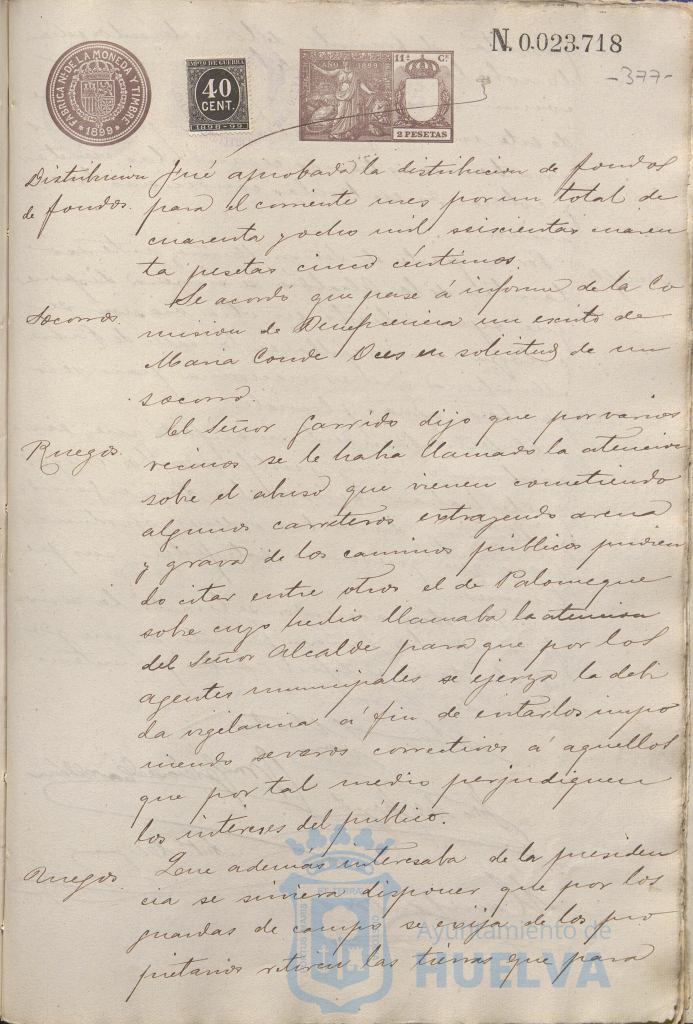 N. 0.023.718
-377-
FABRICA NAL DE LA MONEDA Y TIMBRE
* 1899 *
IMPTO DE GUERRA
40
CENT.
1898-99
11ª Cª
AÑO 1899
2 PESETAS
Distribucion
de fondos.
Fué aprobada la distribucion de fondos
para el corriente mes por un total de
cuarenta y ocho mil seiscientas cuaren
ta pesetas cinco céntimos.
Socorros.
Se acordó que pase á informe de la Co
mision de Beneficencia un escrito de
Maria Conde en solicitud de un
socorro.
Ruegos.
El Señor Garrido dijo que por varios
vecinos se le habia llamado la atencion
sobre el abuso que vienen cometiendo
algunos carreteros extrayendo arena
y grava de los caminos públicos pudien
do citar entre otros el de Palomeque
sobre cuyo hecho llamaba la atencion
del Señor Alcalde para que por los
agentes municipales se ejerza la debi
da vigilancia á fin de evitarlos impo
niendo severos correctivos á aquellos
que por tal medio perjudiquen
los intereses del público.
Ruegos
Que además interesaba de la presiden
cia se sirviera disponer que por los
guardas de campo se exija de los pro
pietarios retiren las tierras que para
Ayuntamiento de
HUELVA